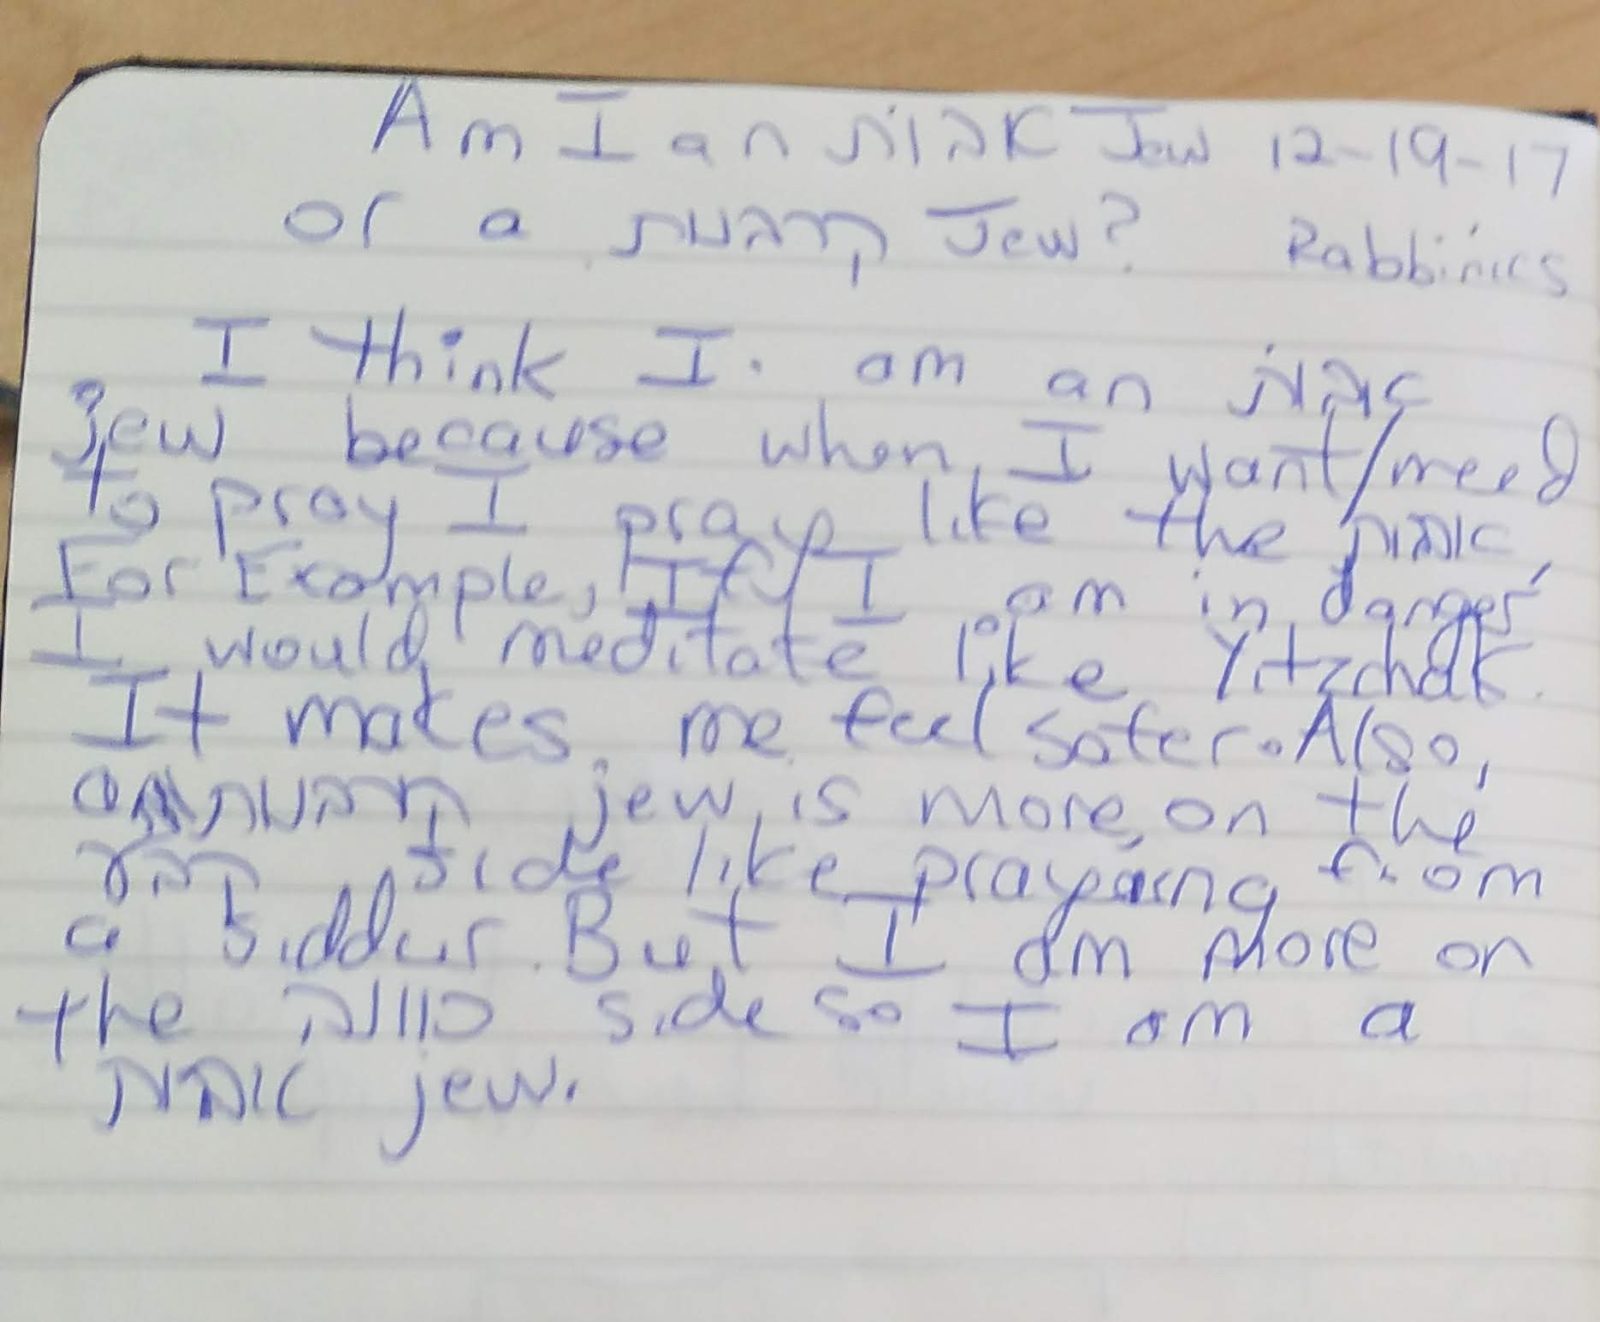 Am I an אבות Jew 12-19-17
or a קרבנות Jew? Rabbinics
I think I am an אבות
jew because when I want/need
to pray I pray like the אבות.
For Example, If I am in danger,
I would meditate like Yitzchak.
It makes me feel safer. Also,
a קרבנות jew is more on the
קבע side like praying from
a siddur. But I am more on
the כוונה side so I am a
אבות jew.